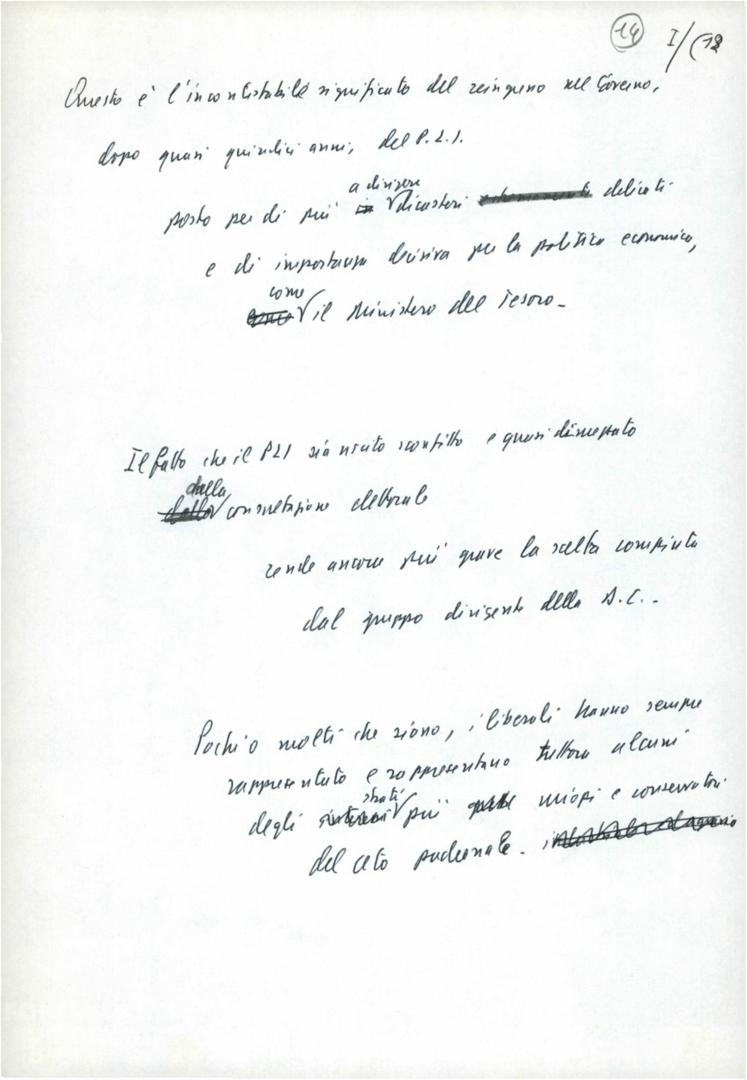 14 I/(12
Questo è l'incontestabile significato del reingresso nel Governo,
dopo quasi quindici anni, del P.L.I.
a dirigere
posto per di più in dicasteri estremamente delicati
e di importanza decisiva per la politica economica,
come
come il Ministero del Tesoro –
Il fatto che il PLI sia uscito sconfitto e quasi dimezzato
dalla
dalla consultazione elettorale
rende ancora più grave la scelta compiuta
dal gruppo dirigente della D.C. –
Pochi o molti che siano, i liberali hanno sempre
rappresentato e rappresentano tuttora alcuni
strati
degli più miopi e conservatori
del ceto padronale –